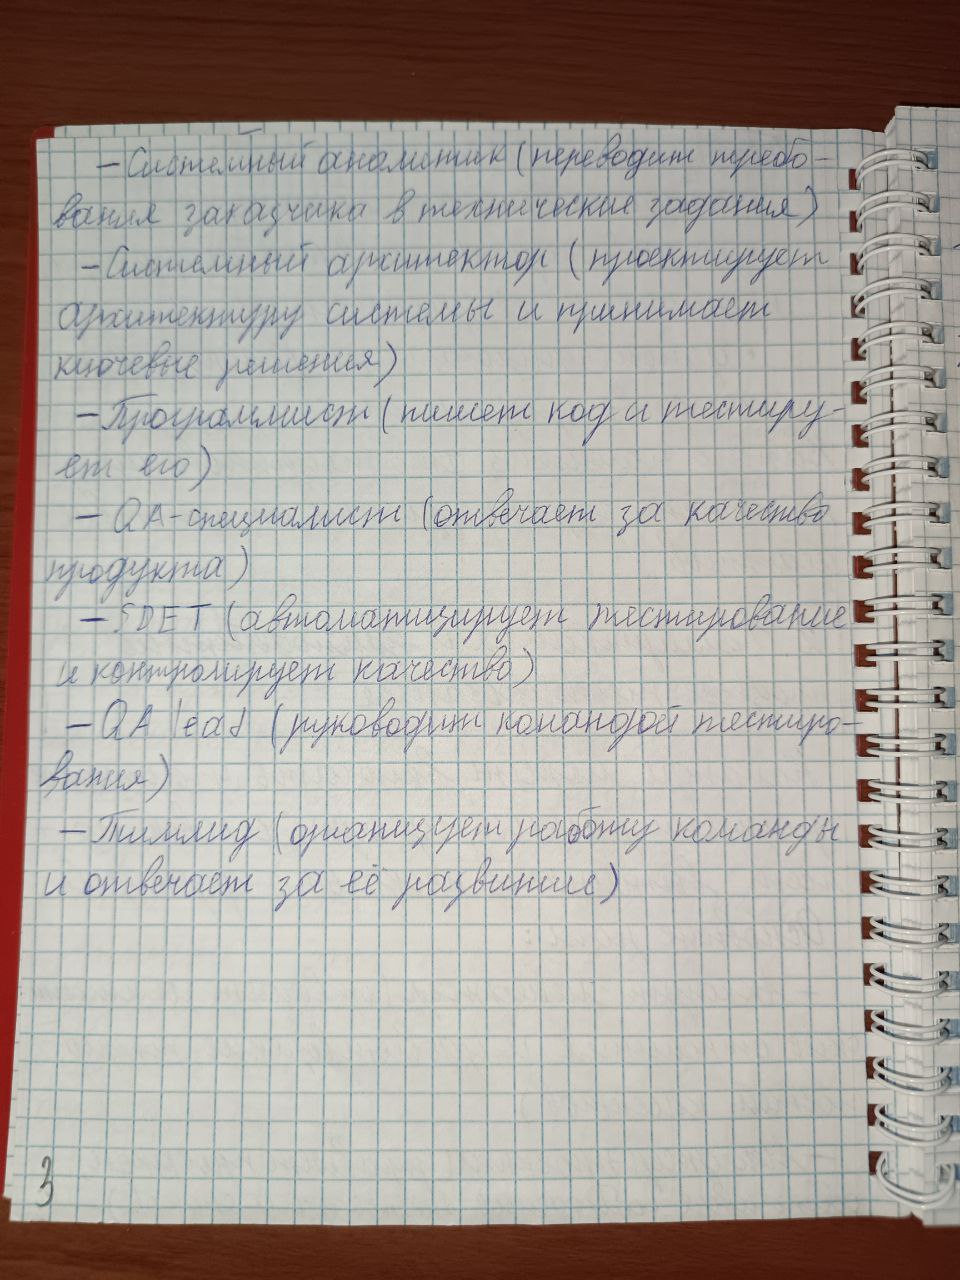 - Системный аналитик (переводит требо-
вания заказчика в технические задания)
- Системный архитектор (проектирует
архитектуру системы и принимает
ключевые решения)
- Программист (пишет код и тестиру-
ет его)
- QA-специалист (отвечает за качество
продукта)
- SDET (автоматизирует тестирование
и контролирует качество)
- QA lead (руководит командой тестиро-
вания)
- Тимлид (организует работу команды
и отвечает за её развитие)
3